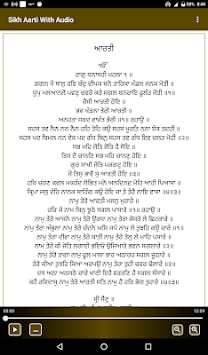 Sikh Aarti With Audio
ਆਰਤੀ
ੴ
ਰਾਗੁ ਧਨਾਸਰੀ ਮਹਲਾ ੧ ॥
ਗਗਨ ਮੈ ਥਾਲੁ ਰਵਿ ਚੰਦੁ ਦੀਪਕ ਬਨੇ ਤਾਰਿਕਾ ਮੰਡਲ ਜਨਕ ਮੋਤੀ ॥
ਧੂਪੁ ਮਲਆਨਲੋ ਪਵਣੁ ਚਵਰੋ ਕਰੇ ਸਗਲ ਬਨਰਾਇ ਫੂਲੰਤ ਜੋਤੀ ॥੧॥
ਕੈਸੀ ਆਰਤੀ ਹੋਇ ॥
ਭਵ ਖੰਡਨਾ ਤੇਰੀ ਆਰਤੀ ॥
ਅਨਹਤਾ ਸਬਦ ਵਾਜੰਤ ਭੇਰੀ ॥੧॥ ਰਹਾਉ ॥
ਸਹਸ ਤਵ ਨੈਨ ਨਨ ਨੈਨ ਹਹਿ ਤੋਹਿ ਕਉ ਸਹਸ ਮੂਰਤਿ ਨਨਾ ਏਕ ਤੋਹੀ ॥
ਸਹਸ ਪਦ ਬਿਮਲ ਨਨ ਏਕ ਪਦ ਗੰਧ ਬਿਨੁ ਸਹਸ ਤਵ ਗੰਧ ਇਵ ਚਲਤ ਮੋਹੀ ॥੨॥
ਸਭ ਮਹਿ ਜੋਤਿ ਜੋਤਿ ਹੈ ਸੋਇ ॥
ਤਿਸ ਦੈ ਚਾਨਣਿ ਸਭ ਮਹਿ ਚਾਨਣੁ ਹੋਇ ॥
ਗੁਰ ਸਾਖੀ ਜੋਤਿ ਪਰਗਟੁ ਹੋਇ ॥
ਜੋ ਤਿਸੁ ਭਾਵੈ ਸੁ ਆਰਤੀ ਹੋਇ ॥੩॥
ਹਰਿ ਚਰਣ ਕਮਲ ਮਕਰੰਦ ਲੋਭਿਤ ਮਨੋ ਅਨਦਿਨੋ ਮੋਹਿ ਆਹੀ ਪਿਆਸਾ ॥
ਕ੍ਰਿਪਾ ਜਲੁ ਦੇਹਿ ਨਾਨਕ ਸਾਰਿੰਗ ਕਉ ਹੋਇ ਜਾ ਤੇ ਤੇਰੈ ਨਾਇ ਵਾਸਾ ॥੪॥
ਨਾਮੁ ਤੇਰੋ ਆਰਤੀ ਮਜਨੁ ਮੁਰਾਰੇ ॥
ਹਰਿ ਕੇ ਨਾਮ ਬਿਨੁ ਝੂਠੇ ਸਗਲ ਪਾਸਾਰੇ ॥੧॥ ਰਹਾਉ ॥
ਨਾਮੁ ਤੇਰੋ ਆਸਨੋ ਨਾਮੁ ਤੇਰੋ ਉਰਸਾ ਨਾਮੁ ਤੇਰਾ ਕੇਸਰੋ ਲੇ ਛਿਟਕਾਰੇ ॥
ਨਾਮੁ ਤੇਰਾ ਅੰਭੁਲਾ ਨਾਮੁ ਤੇਰੋ ਚੰਦਨੋ ਘਸਿ ਜਪੇ ਨਾਮੁ ਲੇ ਤੁਝਹਿ ਕਉ ਚਾਰੇ ॥੧॥
ਨਾਮੁ ਤੇਰਾ ਦੀਵਾ ਨਾਮੁ ਤੇਰੋ ਬਾਤੀ ਨਾਮੁ ਤੇਰੋ ਤੇਲੁ ਲੇ ਮਾਹਿ ਪਸਾਰੇ ॥
ਨਾਮ ਤੇਰੇ ਕੀ ਜੋਤਿ ਲਗਾਈ ਭਇਓ ਉਜਿਆਰੋ ਭਵਨ ਸਗਲਾਰੇ ॥੨॥
ਨਾਮੁ ਤੇਰੋ ਤਾਗਾ ਨਾਮੁ ਫੂਲ ਮਾਲਾ ਭਾਰ ਅਠਾਰਹ ਸਗਲ ਜੂਠਾਰੇ ॥
ਤੇਰੋ ਕੀਆ ਤੁਝਹਿ ਕਿਆ ਅਰਪਉ ਨਾਮੁ ਤੇਰਾ ਤੁਹੀ ਚਵਰ ਢੋਲਾਰੇ ॥੩॥
ਦਸ ਅਠਾ ਅਠਸਠੇ ਚਾਰੇ ਖਾਣੀ ਇਹੈ ਵਰਤਣਿ ਹੈ ਸਗਲ ਸੰਸਾਰੇ ॥
ਕਹੈ ਰਵਿਦਾਸੁ ਨਾਮੁ ਤੇਰੋ ਆਰਤੀ ਸਤਿ ਨਾਮੁ ਹੈ ਹਰਿ ਭੋਗ ਤੁਹਾਰੇ ॥੪॥੩॥
ਸ੍ਰੀ ਸੈਣੁ ॥